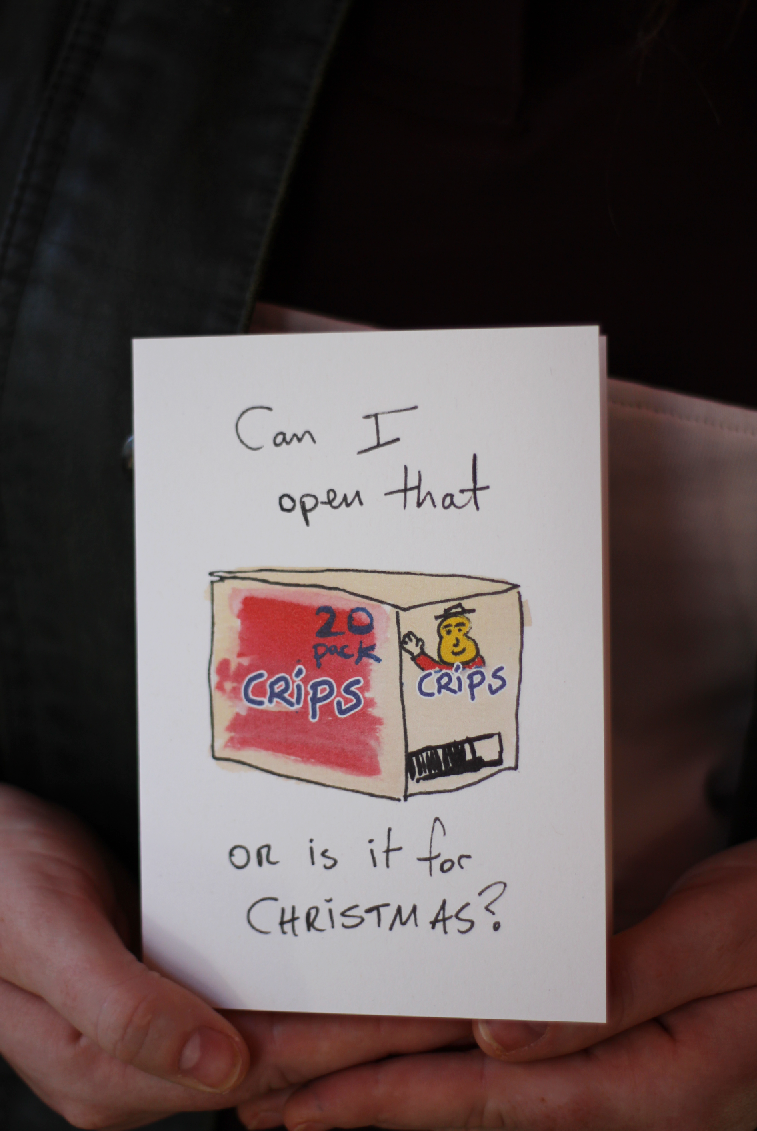 Can I
open that
20
pack
CRiPS
CRiPS
OR is it for
CHRiSTMAS?